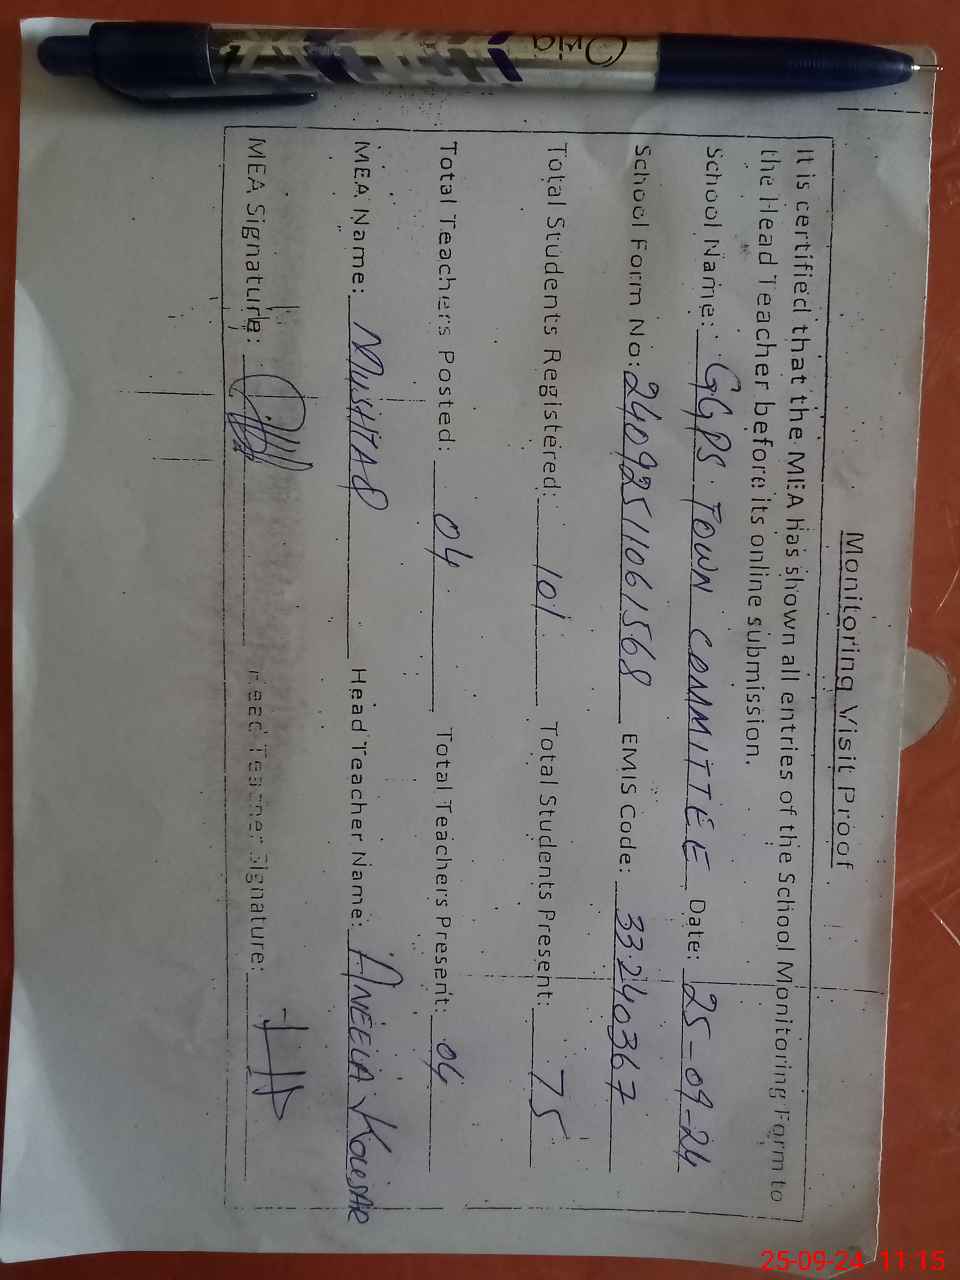 Oria
Monitoring Visit Proof
It is certified that the MEA has shown all entries of the School Monitoring Form to
the Head Teacher before its online submission.
School Name: GGPS TOWN COMMITTEE Date: 25-09-24
School Form No: 24092511061568 EMIS Code: 33240367
Total Students Registered: 101 Total Students Present: 75
Total Teachers Posted: 04 Total Teachers Present: 04
MEA Name: MUSHTAQ Head Teacher Name: ANEELA KOUSAR
MEA Signature: Head Teacher Signature:
25-09-24 11:15